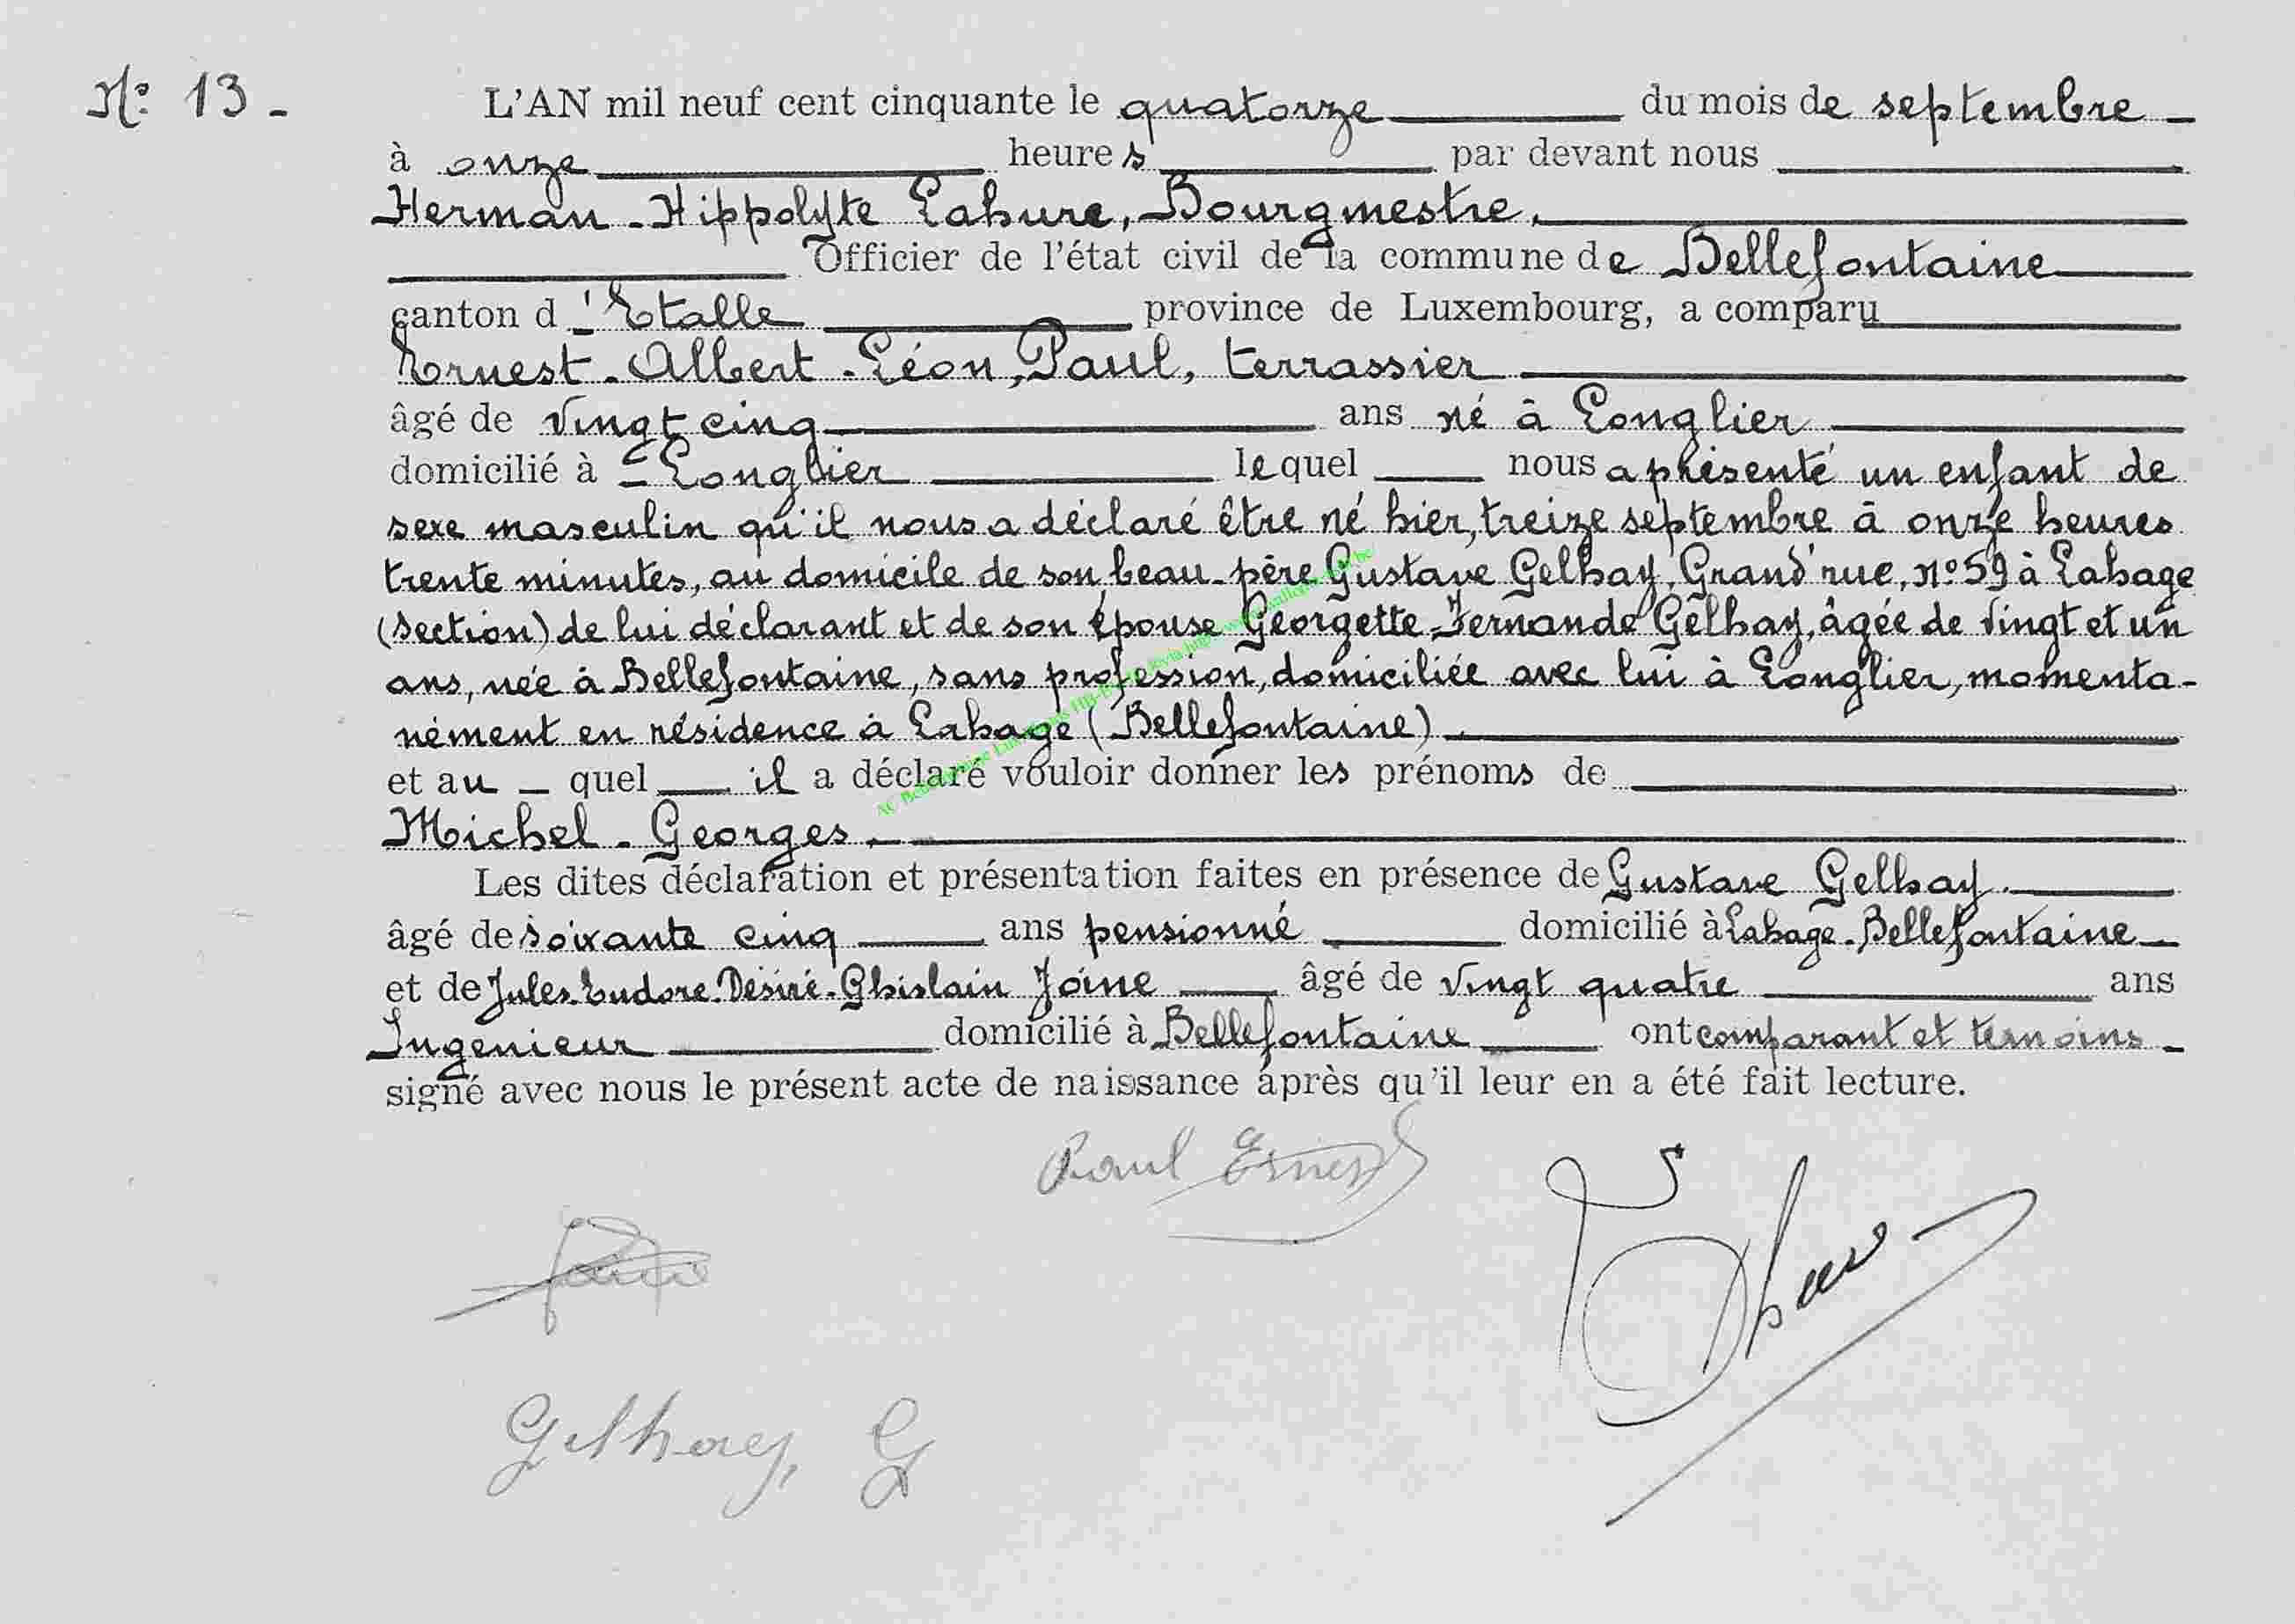 N° 13 -
L'AN mil neuf cent cinquante le quatorze du mois de septembre -
à onze heures par devant nous
Herman - Hippolyte Lahure, Bourgmestre,
Officier de l'état civil de la commune de Bellefontaine
canton d'Etalle province de Luxembourg, a comparu
Ernest - Albert - Léon, Paul, terrassier
âgé de vingt cinq ans né à Longlier
domicilié à - Longlier lequel nous a présenté un enfant de
sexe masculin qu'il nous a déclaré être né hier, treize septembre à onze heures
trente minutes, au domicile de son beau-père Gustave Gelhay, Grand'rue, n° 59 à Lahage
(section) de lui déclarant et de son épouse Georgette-Fernande Gelhay, âgée de vingt et un
ans, née à Bellefontaine, sans profession, domiciliée avec lui à Longlier, momenta-
nément en résidence à Lahage (Bellefontaine)
et au - quel il a déclaré vouloir donner les prénoms de
Michel - Georges.
Les dites déclaration et présentation faites en présence de Gustave Gelhay.
âgé de soixante cinq ans pensionné domicilié à Lahage - Bellefontaine
et de Jules-Eudore-Désiré-Ghislain Joine âgé de vingt quatre ans
Ingenieur domicilié à Bellefontaine ont comparant et temoins -
signé avec nous le présent acte de naissance après qu'il leur en a été fait lecture.
Paul Ernest
Gelhay, G